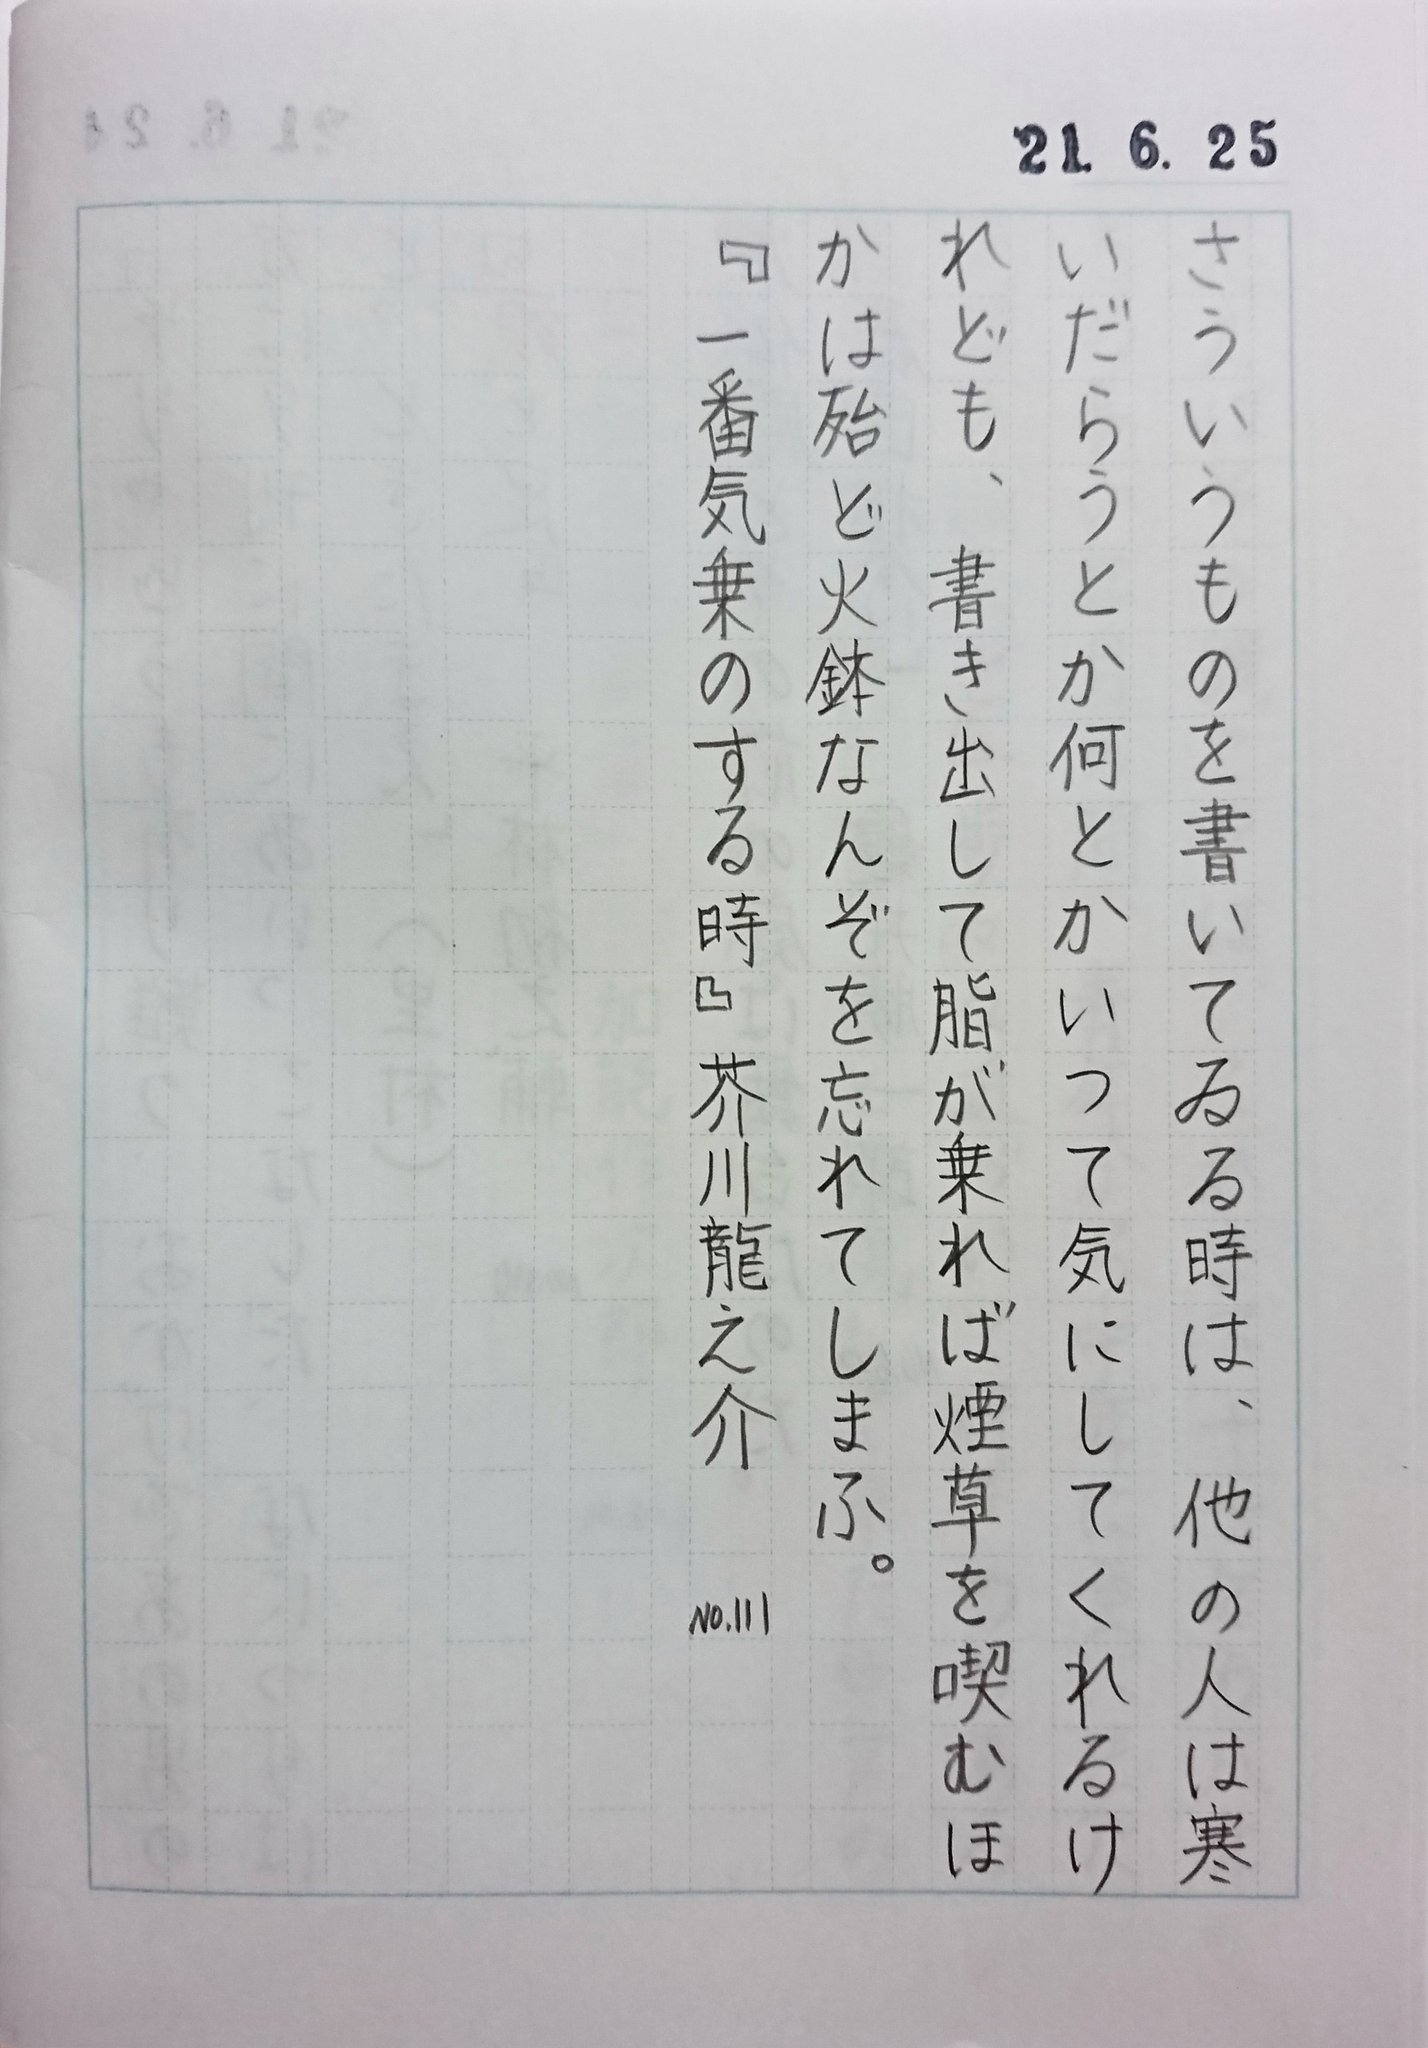 21. 6. 25
さういうものを書いてゐる時は、他の人は寒
いだらうとか何とかいつて気にしてくれるけ
れども、書き出して脂が乗れば煙草を喫むほ
かは殆ど火鉢なんぞを忘れてしまふ。
『一番気乗のする時』芥川龍之介 NO.111